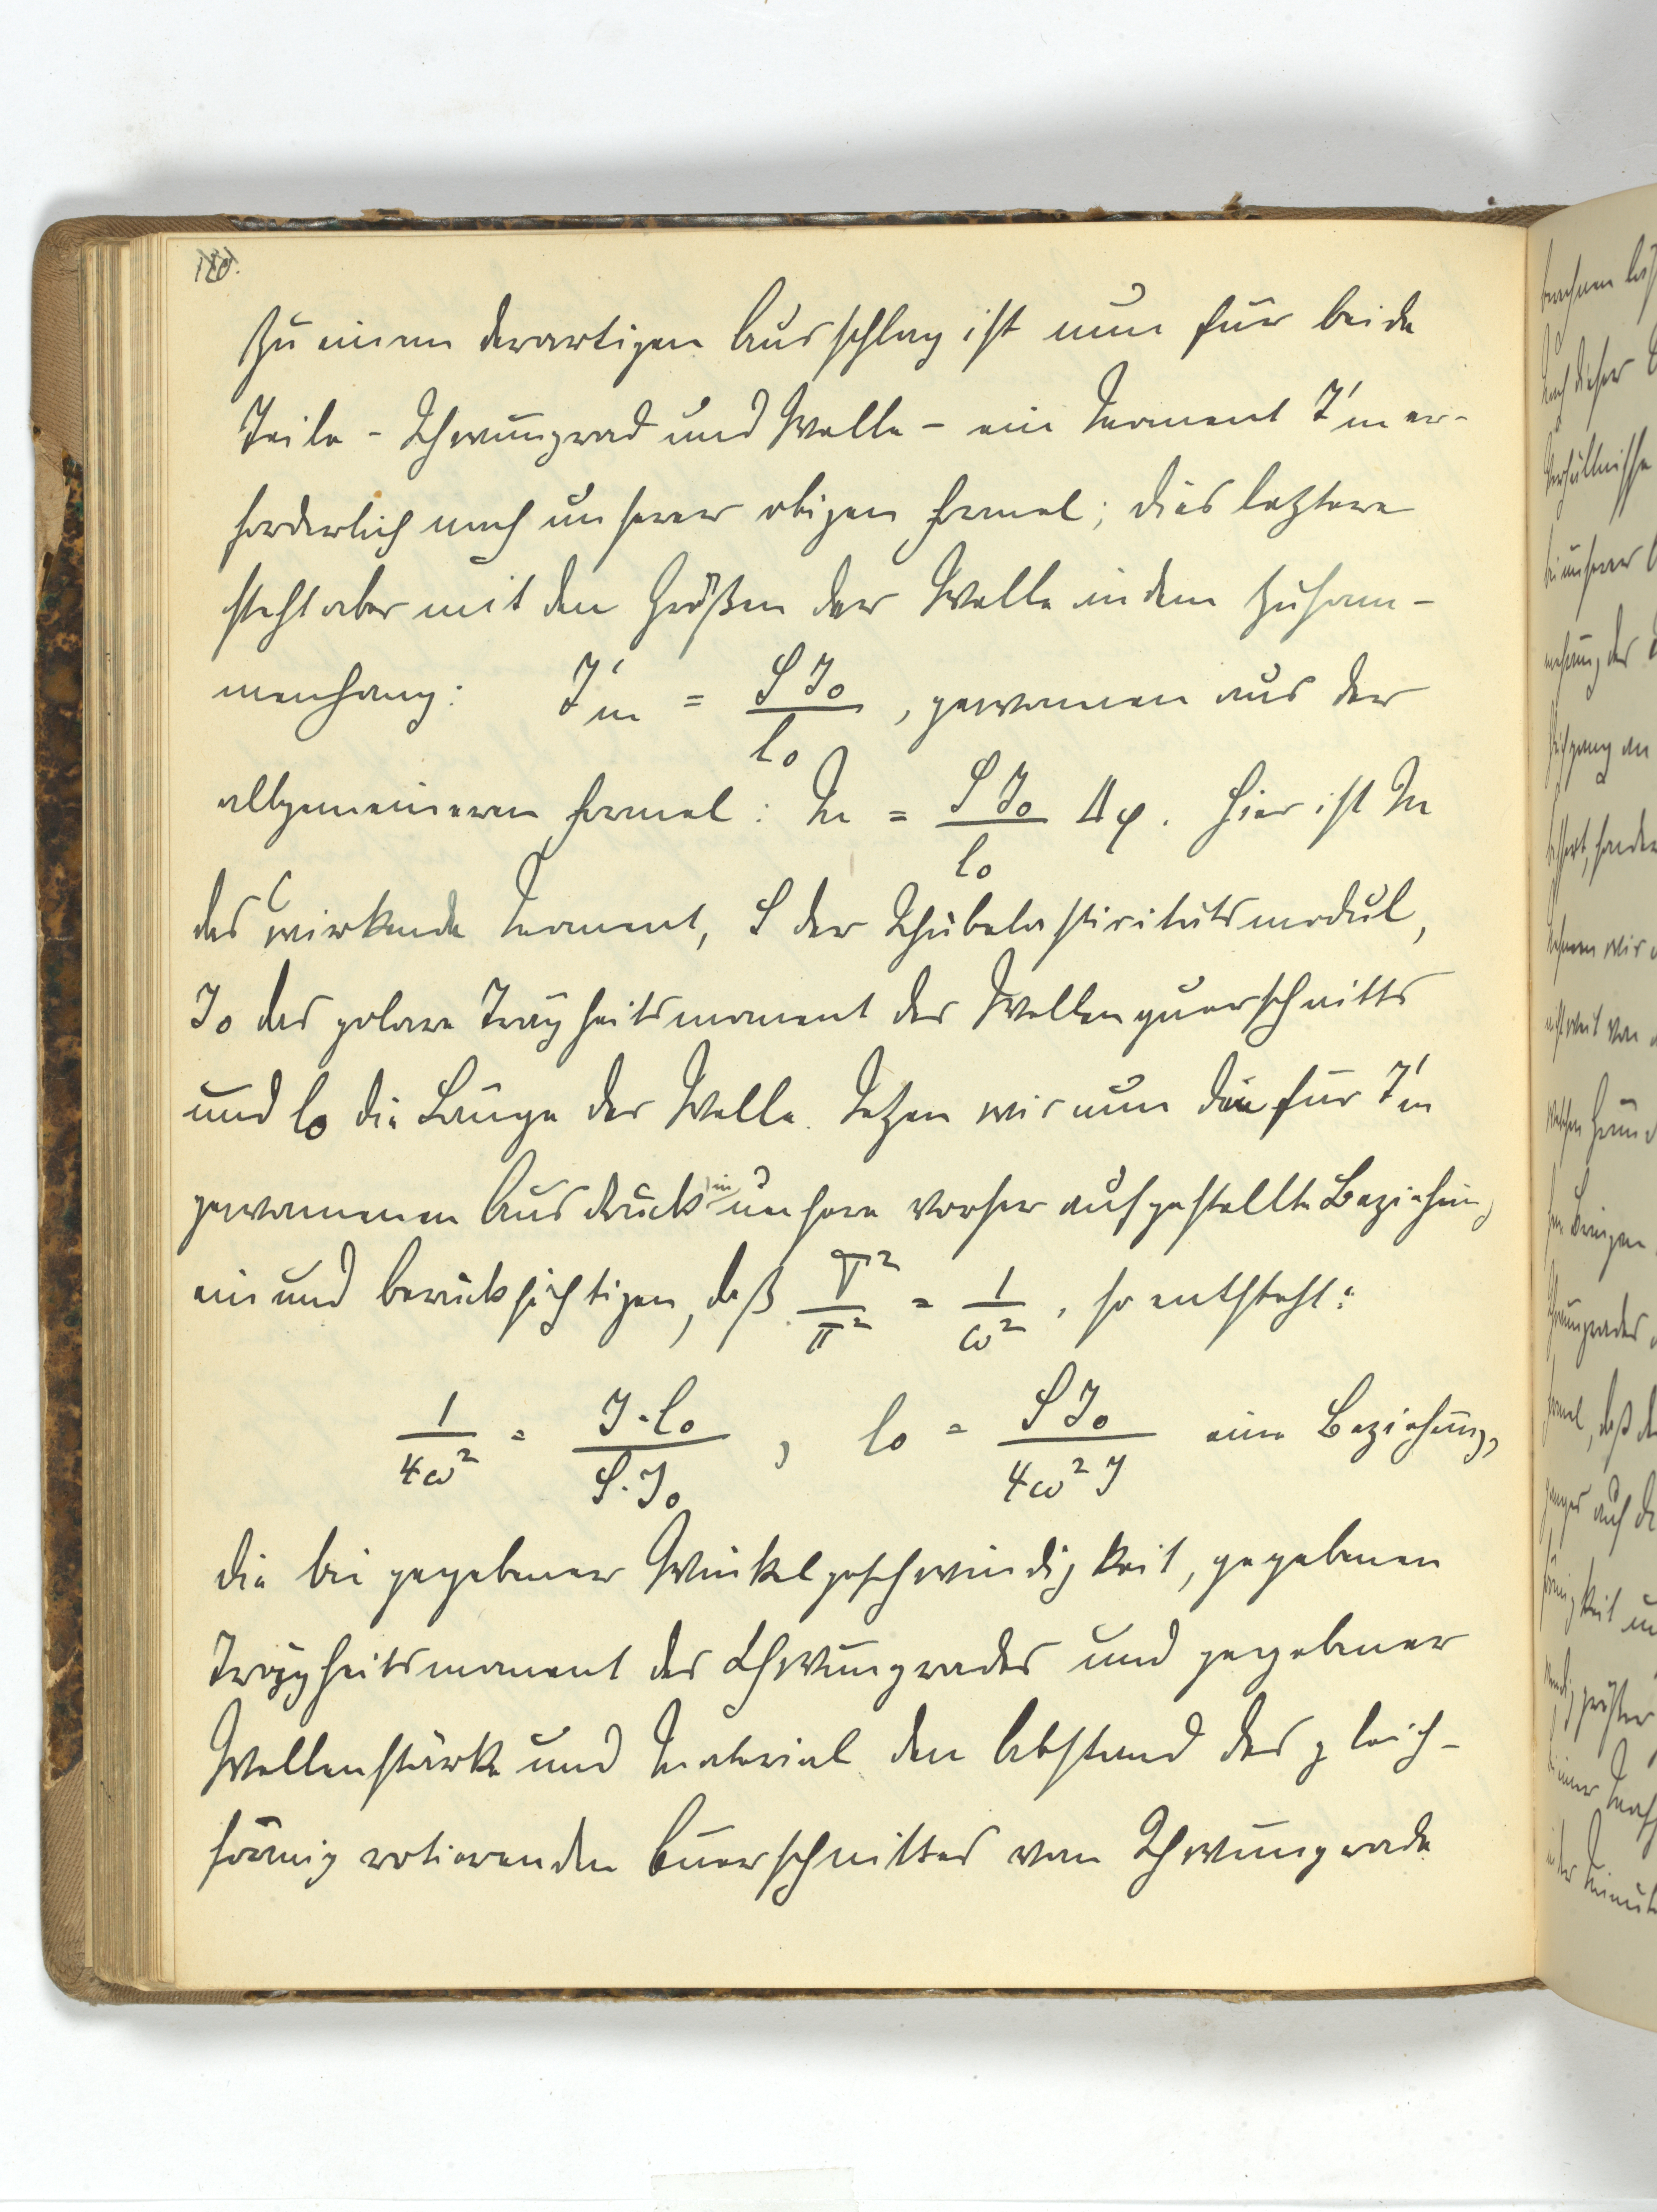 180.
Zu einem derartigen Ausschlag ist nun für beide
Teile - Schwungrad und Welle - ein Moment I'm er-
forderlich nach unserer obigen Formel; dies letztere
steht aber mit den Größen der Welle in dem Zusam-
menhang: I'm = S J₀ / l₀ , gewonnen aus der
allgemeineren Formel: M = S J₀ / l₀ Δφ. Hier ist M
das wirkende Moment, S der Schubelastizitätsmodul,
J₀ das polare Trägheitsmoment des Wellenquerschnitts
und l₀ die Länge der Welle. Setzen wir nun den für I'm
gewonnenen Ausdruck in unsere vorher aufgestellte Beziehung
ein und berücksichtigen, daß T² / π² = 1 / ω² , so entsteht:
1 / 4ω² = J · l₀ / S · J₀ , l₀ = S J₀ / 4ω² J eine Beziehung,
die bei gegebener Winkelgeschwindigkeit, gegebenen
Trägheitsmoment des Schwungrades und gegebener
Wellenstärke und Material den Abstand des gleich-
förmig rotierenden Querschnittes vom Schwungrade